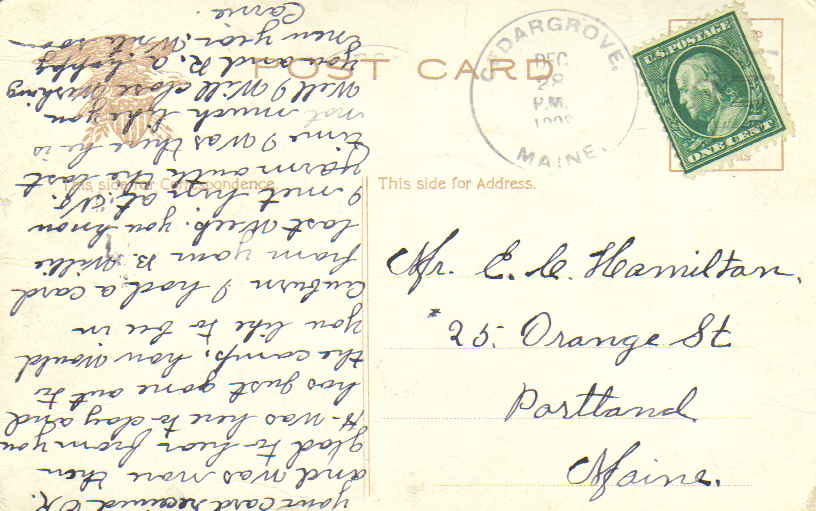 POST CARD
CEDARGROVE,
DEC
28
P.M.
MAINE.
U.S. POSTAGE
ONE CENT
This side for Correspondence.
This side for Address.
Mr. E. C. Hamilton.
25. Orange St
Portland
Maine.
your card received O.K.
and was more then
glad to hear from you
H- was here to day and
has just gone out to
the camp, how would
you like to be in
Auburn I had a card
from your B. Willie
last Week. you know
I met him at No.
Yarmouth the last
time I was there he is
not much like you
Well I Will close wishing
you and R. a happy
new year. Write soon
Carrie.